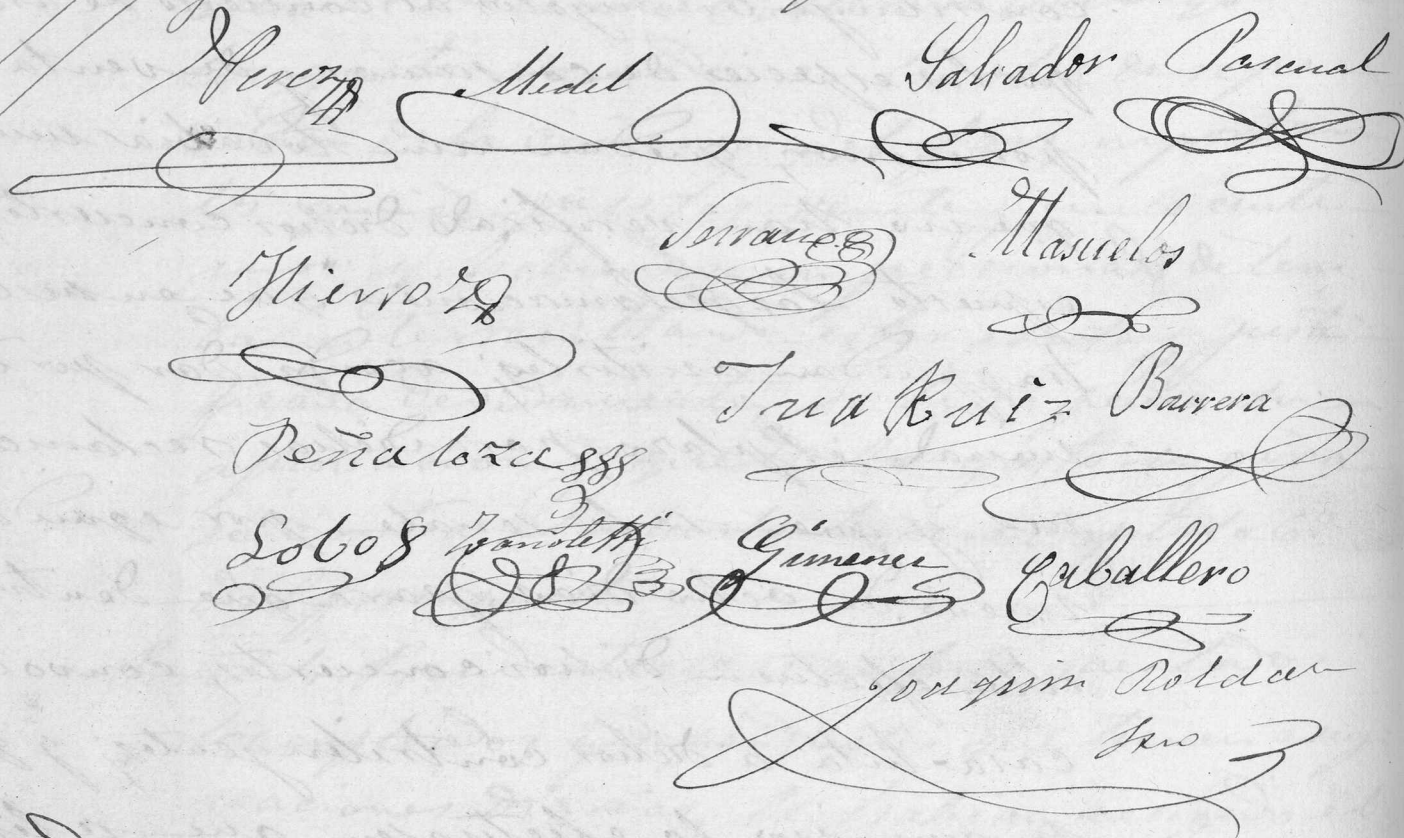 Perez Medel Salvador Pascual
Serrano Masuelos
Hierro
Ruiz Barrera
Peñaloza
Lobo Zanoletti Gimenez Caballero
Joaquin Roldan
Srio